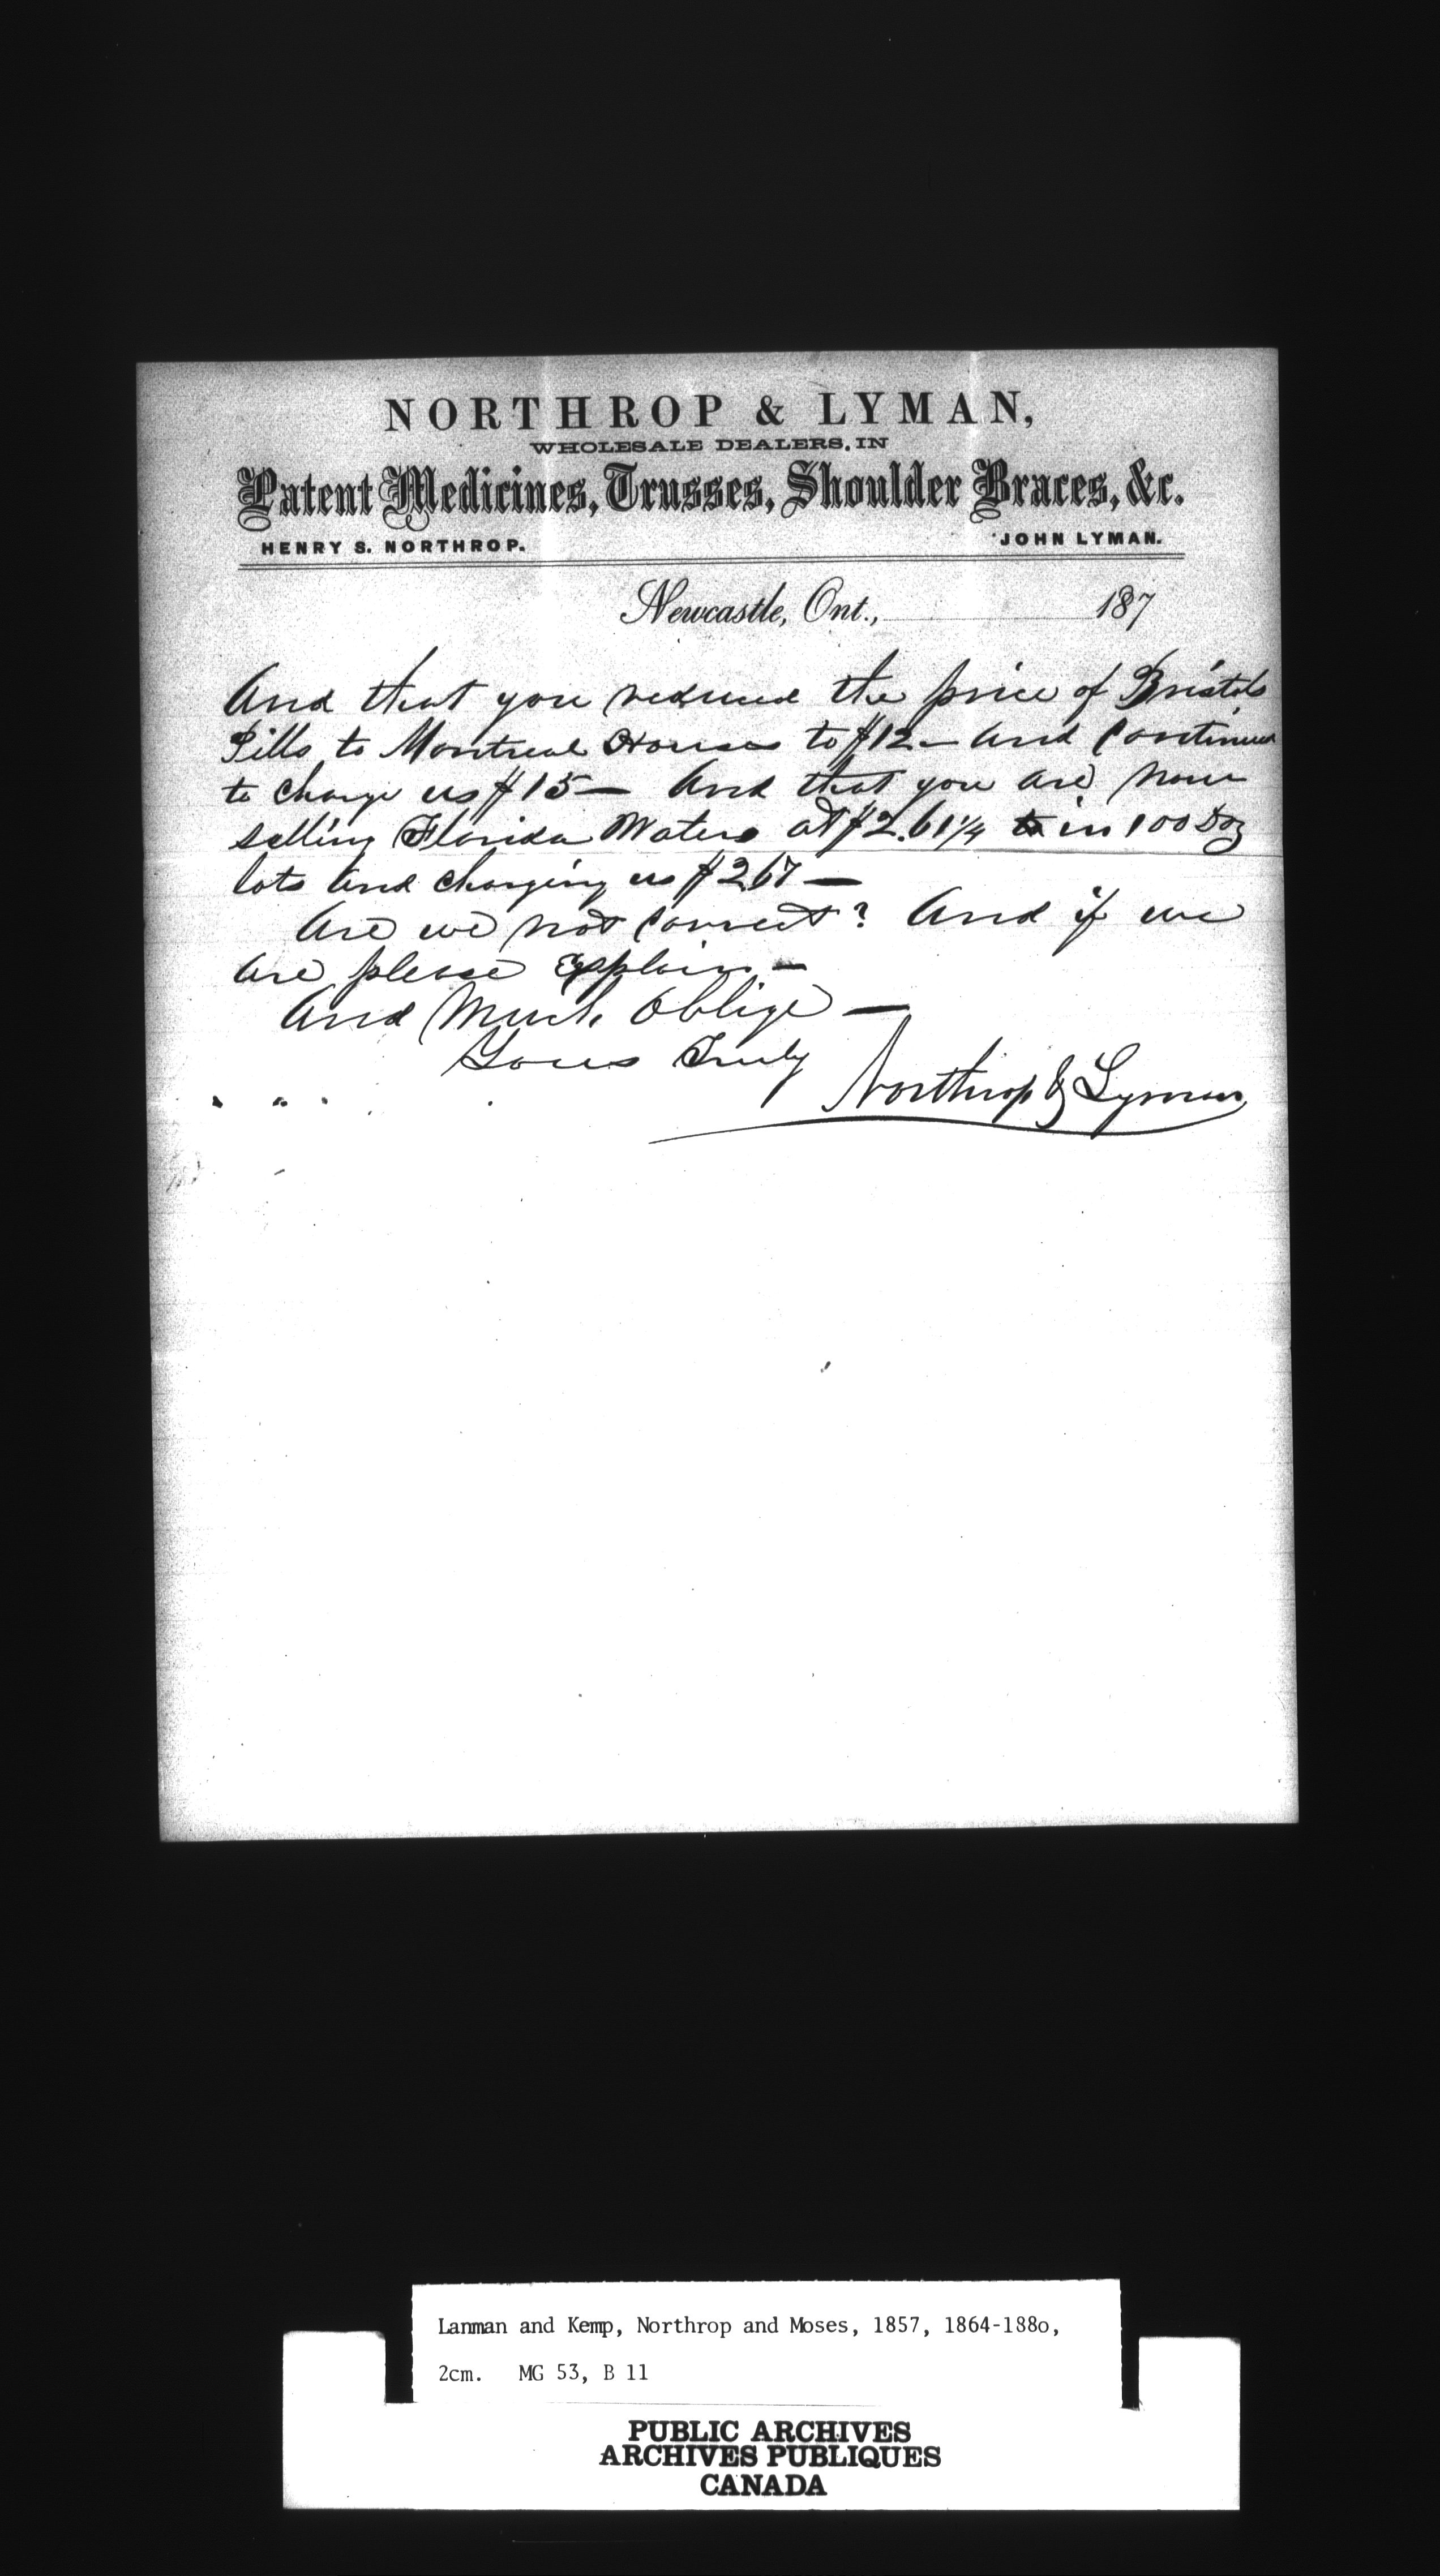 NORTHROP & LYMAN,
WHOLESALE DEALERS, IN
Patent Medicines, Trusses, Shoulder Braces, &c.
HENRY S. NORTHROP. JOHN LYMAN.
Newcastle, Ont., 187
And that you reduced the price of Bristols
Pills to Montreal Houses to $12 — and Continued
to charge us $15 — And that you are now
selling Florida Waters at $2.61 1/4 to in 100 Doz
lots and charging us $267 —
Are we not correct? And if we
are please Explain —
And Much Oblige —
Yours Truly
Northrop & Lyman
Lanman and Kemp, Northrop and Moses, 1857, 1864-188o,
2cm. MG 53, B 11
PUBLIC ARCHIVES
ARCHIVES PUBLIQUES
CANADA